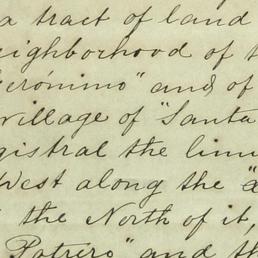 a tract of land
neighborhood of t
erónimo" and of
village of "Santa
gistral the limi
West along the "a
the North of it,
Potrero" and th